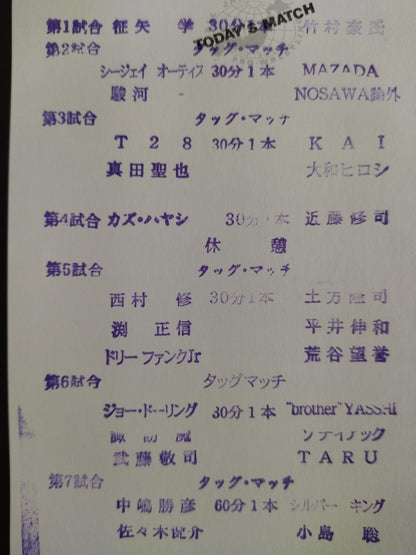 TODAY'S MATCH
第1試合 征矢 学 30分1本 竹村豪氏
第2試合 タッグ・マッチ
シージェイ オーティス 30分1本 MAZADA
駿河 NOSAWA論外
第3試合 タッグ・マッチ
T28 30分1本 KAI
真田聖也 大和ヒロシ
第4試合 カズ・ハヤシ 30分1本 近藤修司
休憩
第5試合 タッグ・マッチ
西村 修 30分1本 土方隆司
渕 正信 平井伸和
ドリーファンクJr 荒谷望誉
第6試合 タッグマッチ
ジョー・ドーリング 30分1本 "brother"YASSHI
諏訪魔
武藤敬司 TARU
第7試合 タッグ・マッチ
中嶋勝彦 60分1本 シルバー キング
佐々木健介 小島 聡